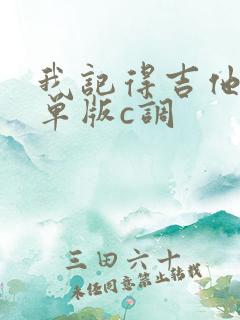 我記得吉他
單版c調
三田六十
未经同意禁止转载